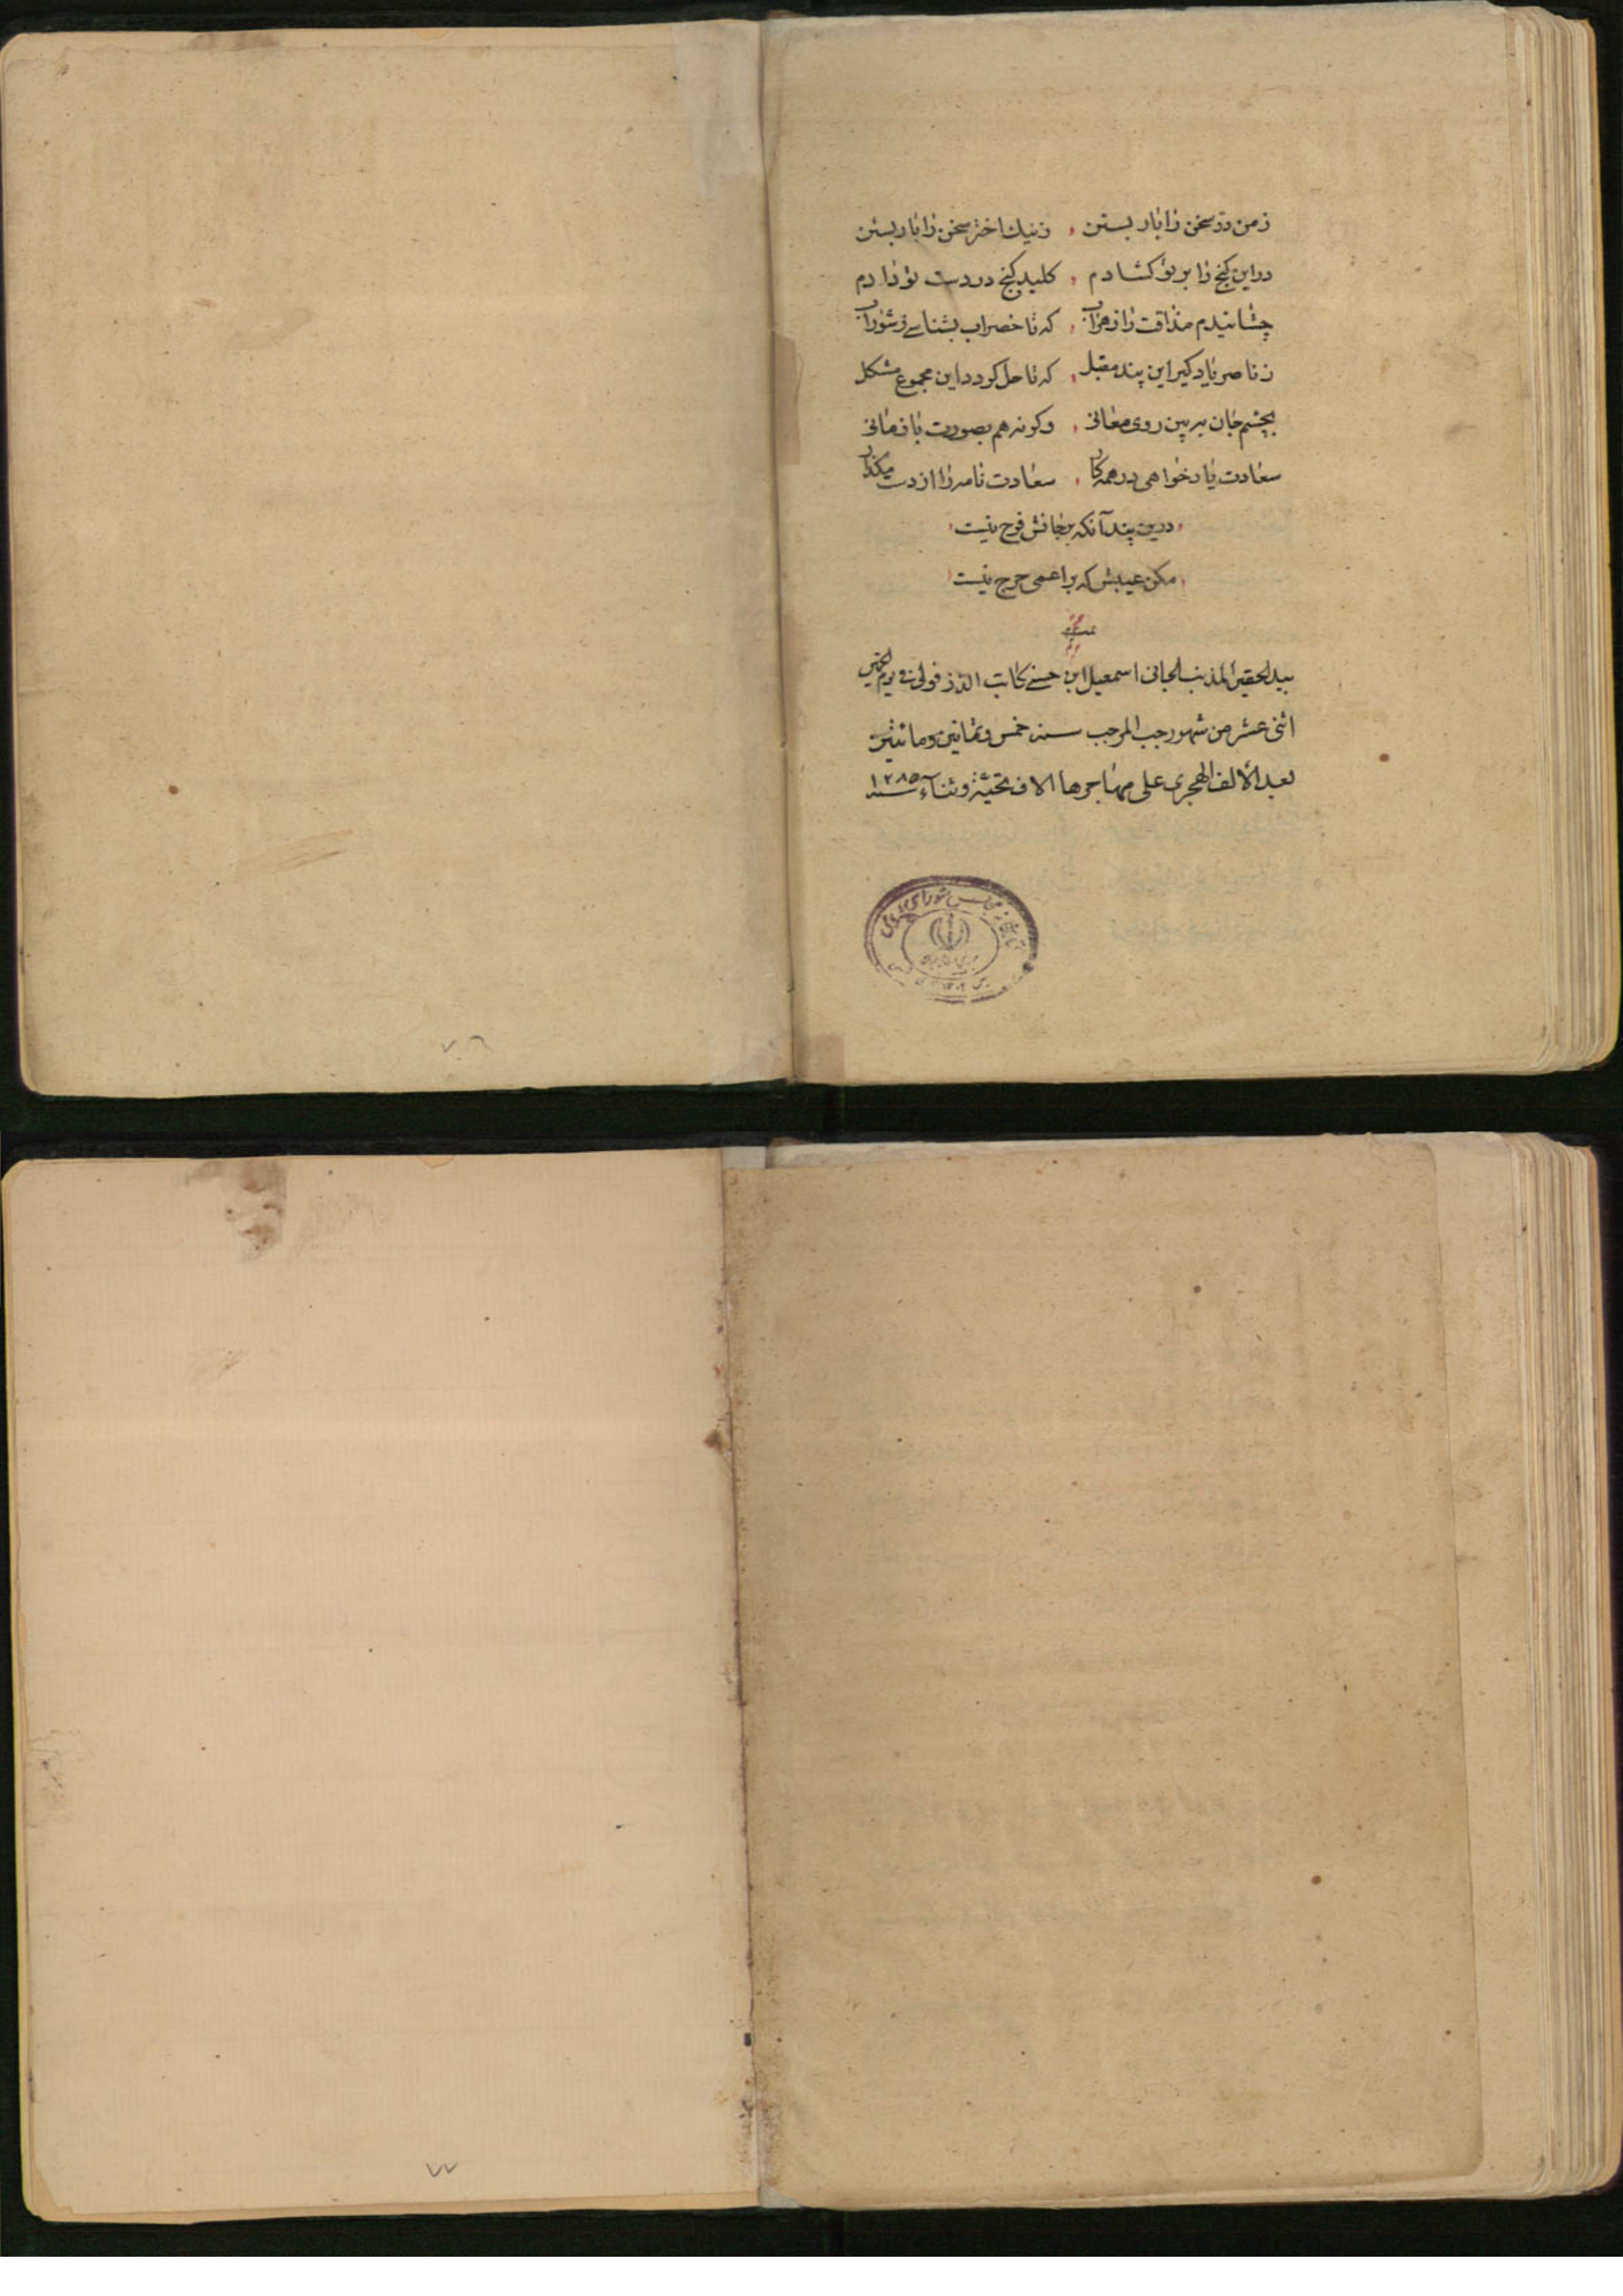 ز من در سخن را بار بستن ، ز نیك اختر سخن را بار بستن
در این کنج را بر تو کشادم ، کلید کنج در دست تو دادم
چشانیدم مذاقت را زهر آب ، که تا خضر آب بشناسی ز شور آب
ز ناصر یاد کیر این پند مقبل ، که تا حل کردد این مجموع مشکل
بچشم جان ببین روی معانی ، وکرنه هم بصورت باز مانی
سعادت یار خواهی در همه کار ، سعادت نامه را از دست مکذار
درین پند آنکه بر جانش فرح نیست
مکن عیبش که بر اعمی حرج نیست
بید الحقیر المذنب الجانی اسمعیل ابن حسنے کاتب الدزفولی فے یوم الخمیس
اثنی عشر من شهور رجب المرجب سنه خمس و ثمانین و مائتین
بعد الالف الهجری علی مهاجرها الاف تحیة و ثناء سنه ۱۲۸۵
کتابخانه مجلس شورای